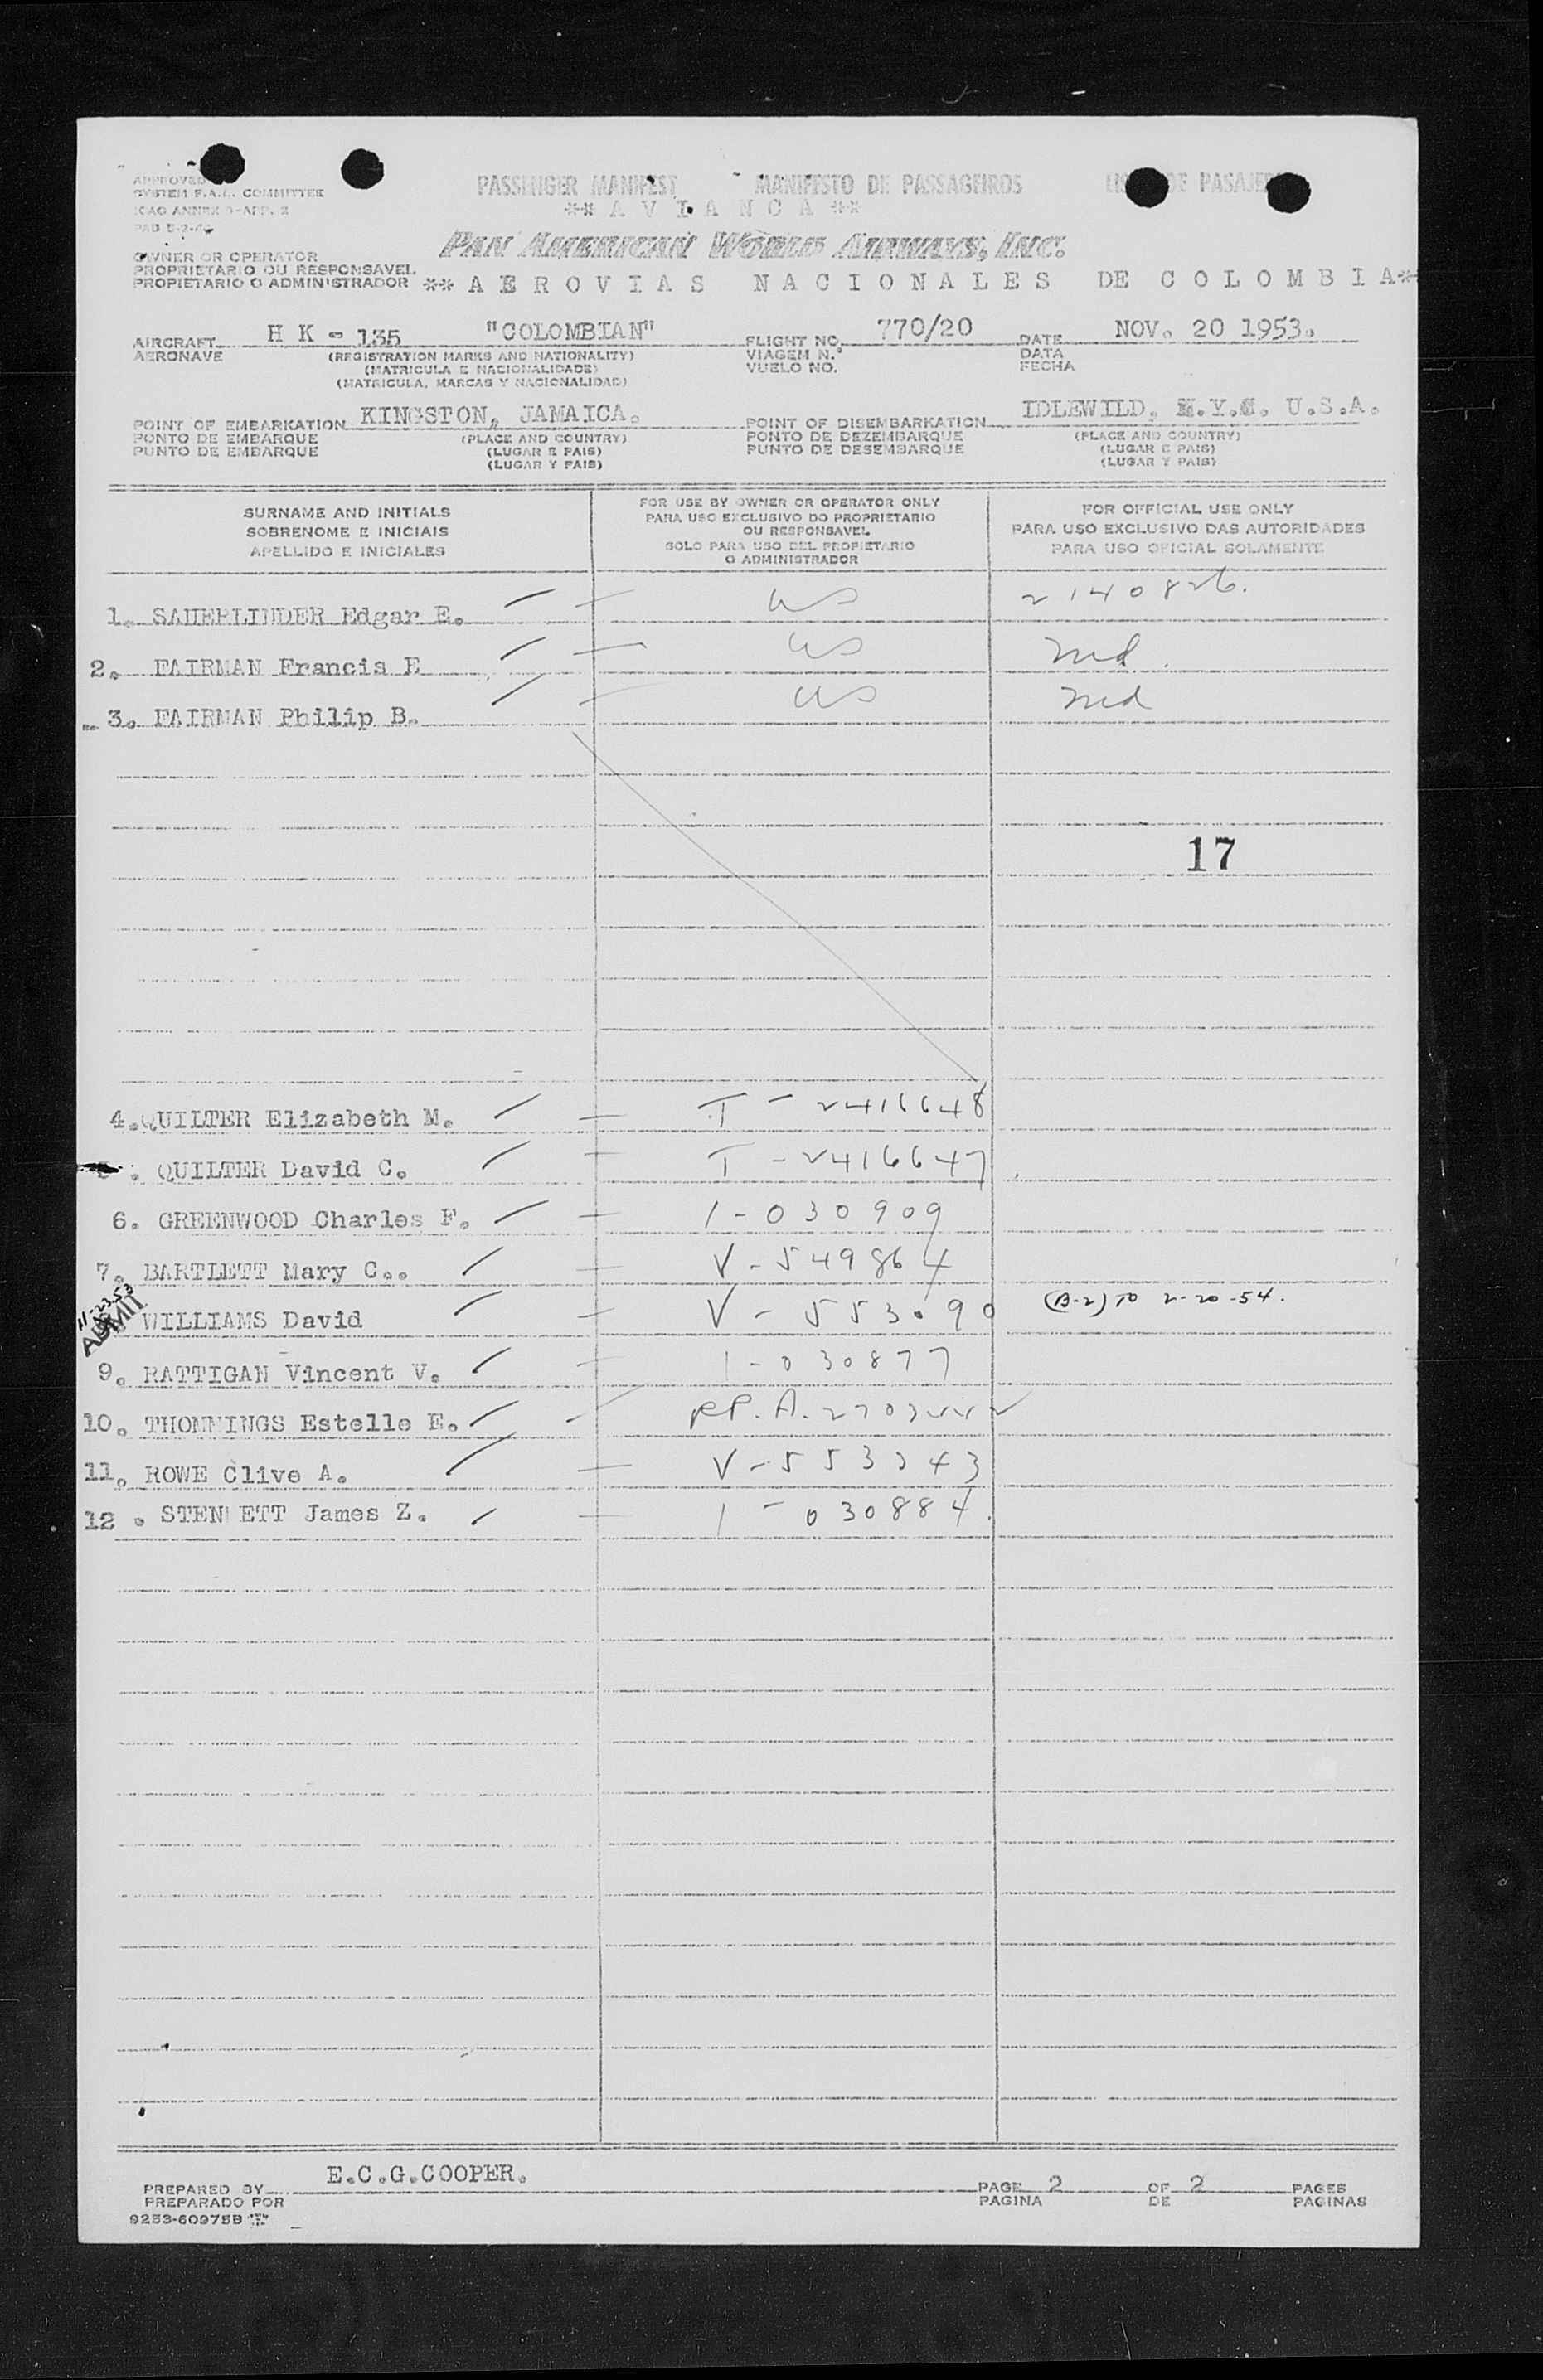 APPROVED
SYSTEM F.A.L. COMMITTEE
ICAO ANNEX 9-APP. 2
PASSENGER MANIFEST MANIFESTO DE PASSAGEIROS DE
** A V I A N C A **
PAN AMERICAN WORLD AIRWAYS, INC.
OWNER OR OPERATOR
PROPRIETARIO OU RESPONSAVEL
PROPIETARIO O ADMINISTRADOR ** A E R O V I A S N A C I O N A L E S DE C O L O M B I A**
AIRCRAFT H K - 135 "COLOMBIAN" FLIGHT NO. 770/20 DATE NOV. 20 1953.
AERONAVE (REGISTRATION MARKS AND NATIONALITY) VIAGEM N.º DATA
(MATRICULA E NACIONALIDADE) VUELO NO. FECHA
(MATRICULA, MARCAS Y NACIONALIDAD)
POINT OF EMBARKATION KINGSTON, JAMAICA. POINT OF DISEMBARKATION IDLEWILD, U.S.A.
PONTO DE EMBARQUE (PLACE AND COUNTRY) PONTO DE DEZEMBARQUE (PLACE AND COUNTRY)
PUNTO DE EMBARQUE (LUGAR E PAIS) PUNTO DE DESEMBARQUE (LUGAR E PAIS)
(LUGAR Y PAIS) (LUGAR Y PAIS)
SURNAME AND INITIALS FOR USE BY OWNER OR OPERATOR ONLY FOR OFFICIAL USE ONLY
SOBRENOME E INICIAIS PARA USO EXCLUSIVO DO PROPRIETARIO PARA USO EXCLUSIVO DAS AUTORIDADES
OU RESPONSAVEL
APELLIDO E INICIALES SOLO PARA USO DEL PROPIETARIO PARA USO OFICIAL SOLAMENTE
O ADMINISTRADOR
1. Edgar E. US 2140826.
2. FAIRMAN Francis E US Md.
3. FAIRMAN Philip B. US Md
17
4. QUILTER Elizabeth M. T - 2416648
. QUILTER David C. T - 2416647
6. GREENWOOD Charles F. 1-030909
7. BARTLETT Mary C.. V-549864
11-23-53
ADMIT
WILLIAMS David V-553090 (B-2) TO 2-20-54.
9. RATTIGAN Vincent V. 1-030877
10. Estelle E.
11. ROWE Clive A. V-553343
12 . James Z. 1-030884.
PREPARED BY E.C.G.COOPER. PAGE 2 OF 2 PAGES
PREPARADO POR PAGINA DE PAGINAS
9253-60975B